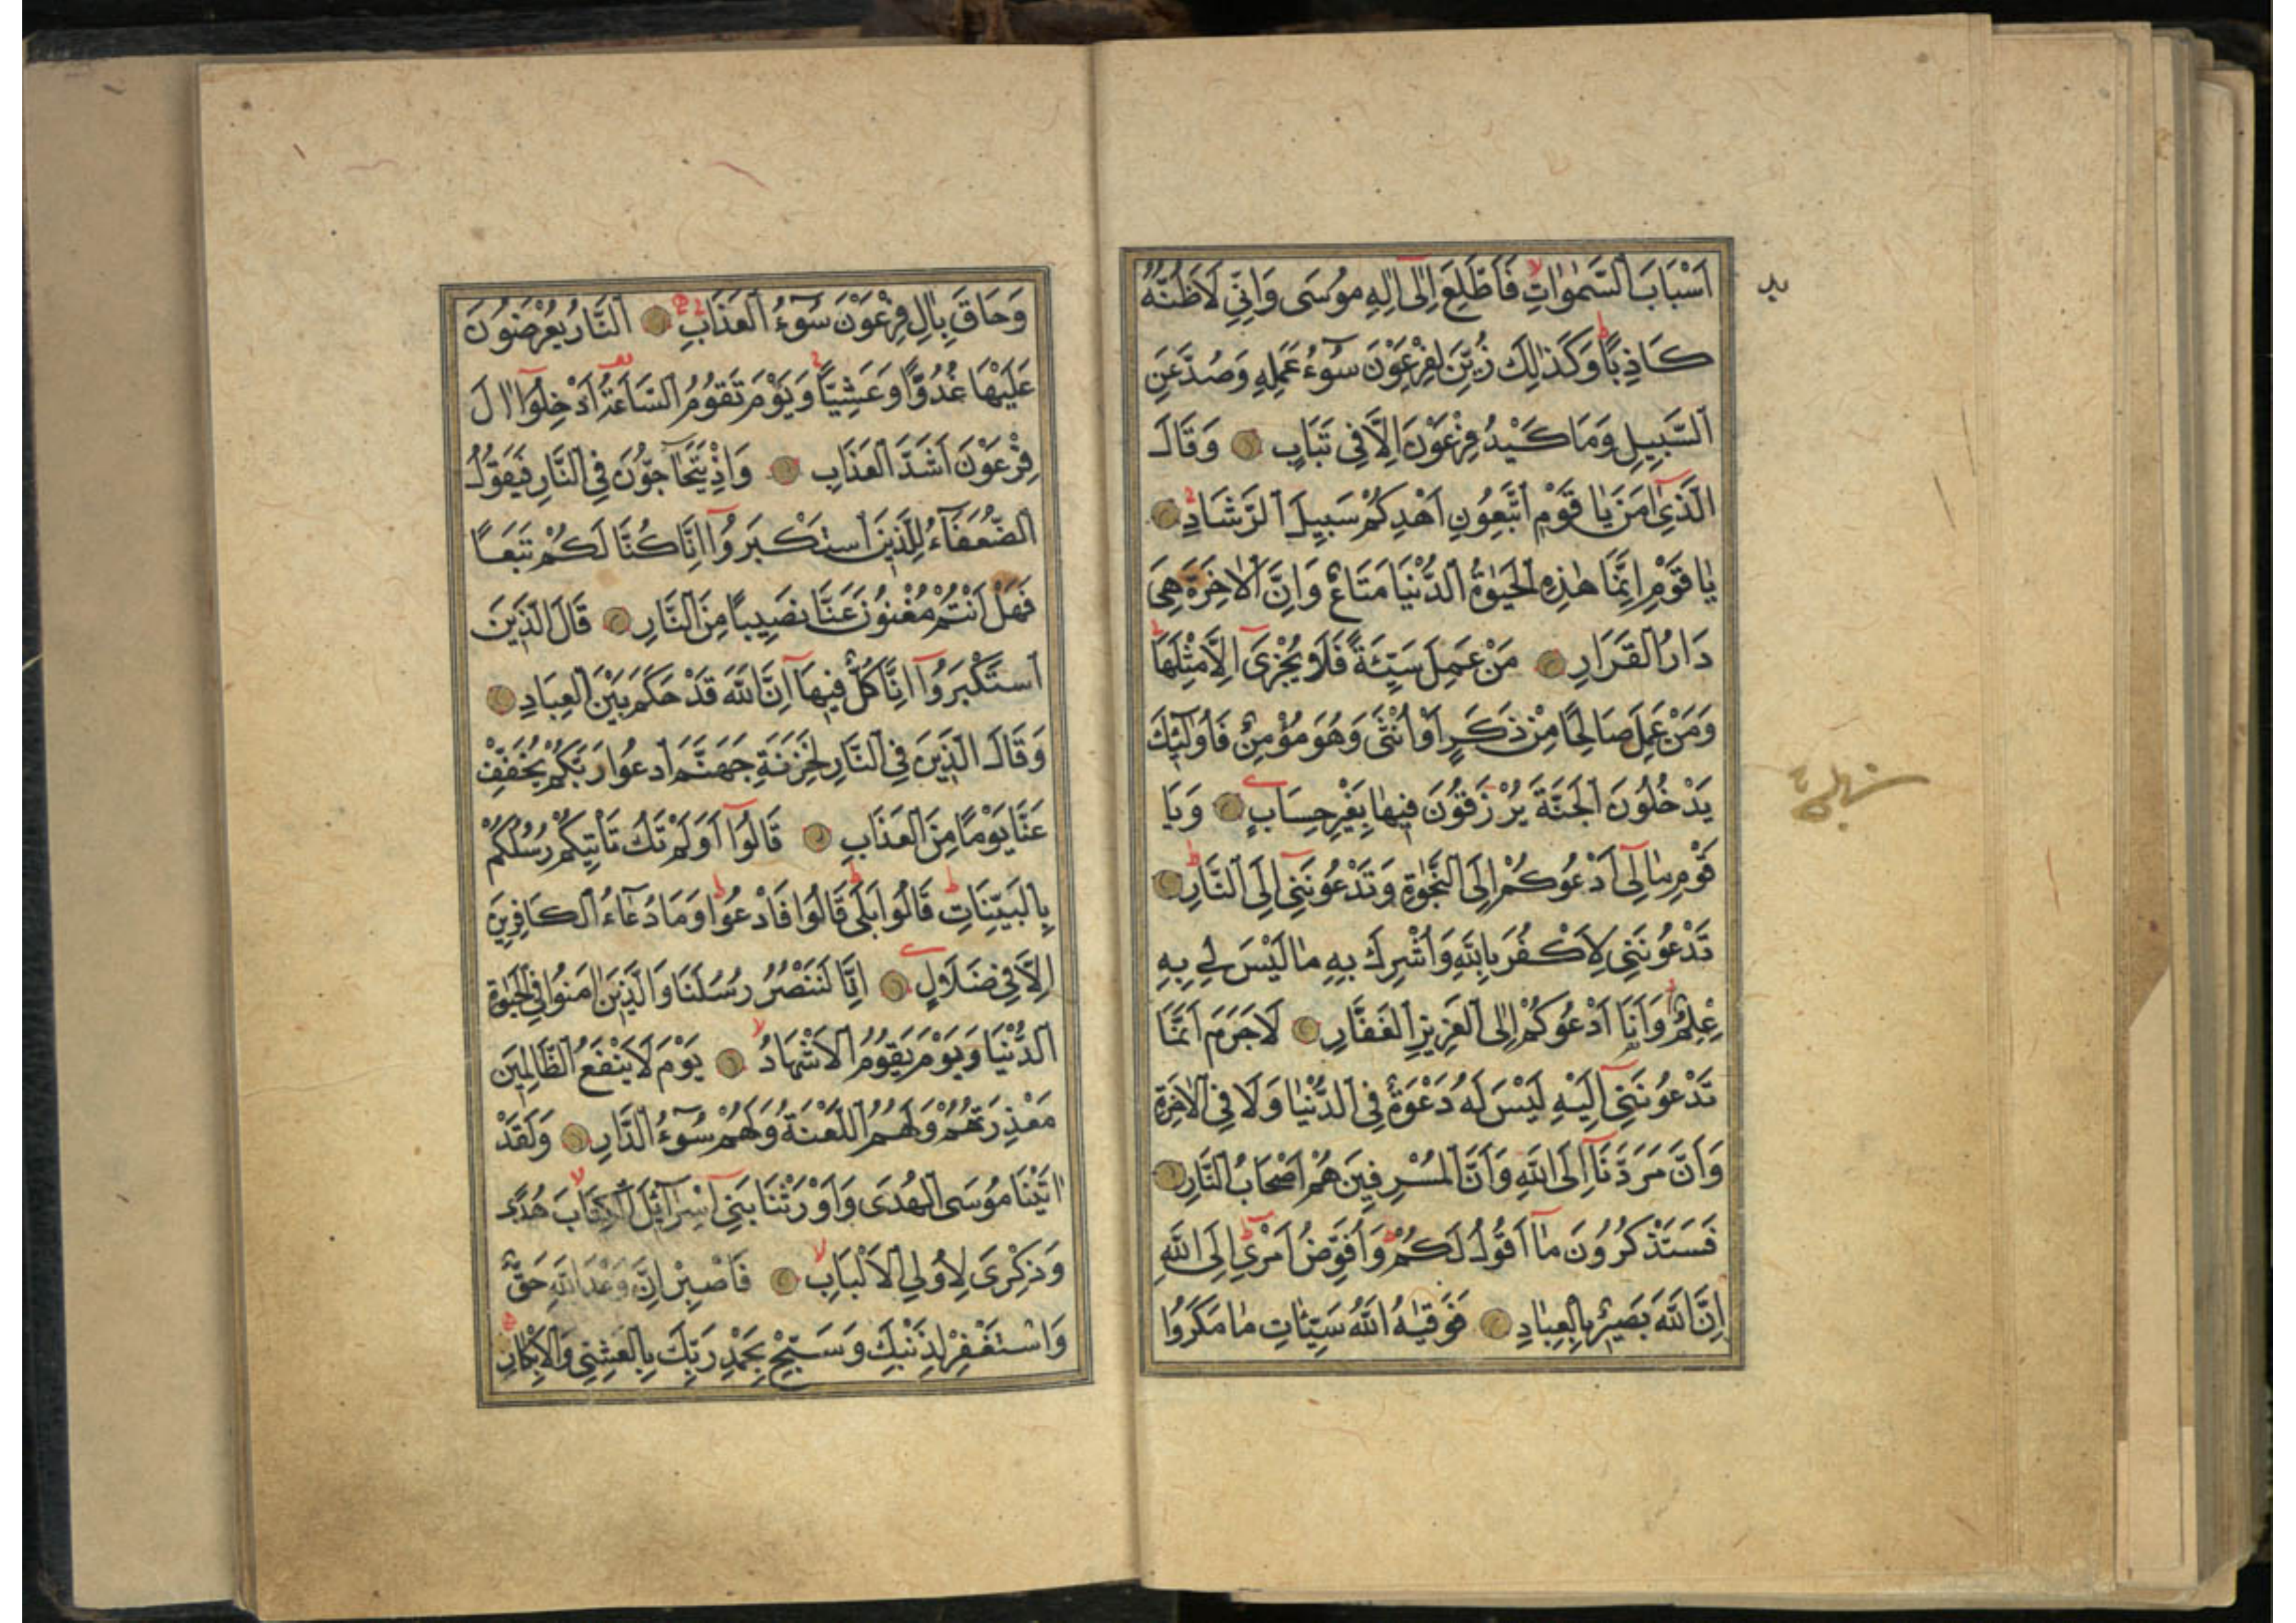 اَسْبَابَ السَّمٰوَاتِ فَاَطَّلِعَ اِلٰٓى اِلٰهِ مُوسَى وَاِنِّي لَاَظُنُّهُ
كَاذِبًا وَكَذٰلِكَ زُيِّنَ لِفِرْعَوْنَ سُوٓءُ عَمَلِهِ وَصُدَّ عَنِ
السَّبِيلِ وَمَا كَيْدُ فِرْعَوْنَ اِلَّا فِي تَبَابٍ وَقَالَ
الَّذِٓي اٰمَنَ يَا قَوْمِ اتَّبِعُونِ اَهْدِكُمْ سَبِيلَ الرَّشَادِ
يَا قَوْمِ اِنَّمَا هٰذِهِ الْحَيٰوةُ الدُّنْيَا مَتَاعٌ وَاِنَّ الْاٰخِرَةَ هِيَ
دَارُ الْقَرَارِ مَنْ عَمِلَ سَيِّئَةً فَلَا يُجْزٰٓى اِلَّا مِثْلَهَا
وَمَنْ عَمِلَ صَالِحًا مِنْ ذَكَرٍ اَوْ اُنْثَى وَهُوَ مُؤْمِنٌ فَاُولٰٓئِكَ
يَدْخُلُونَ الْجَنَّةَ يُرْزَقُونَ فِيهَا بِغَيْرِ حِسَابٍ وَيَا
قَوْمِ مَا لِٓي اَدْعُوكُمْ اِلَى النَّجٰوةِ وَتَدْعُونَنِٓي اِلَى النَّارِ
تَدْعُونَنِي لِاَكْفُرَ بِاللّٰهِ وَاُشْرِكَ بِهِ مَا لَيْسَ لِي بِهِ
عِلْمٌ وَاَنَا اَدْعُوكُمْ اِلَى الْعَزِيزِ الْغَفَّارِ لَا جَرَمَ اَنَّمَا
تَدْعُونَنِٓي اِلَيْهِ لَيْسَ لَهُ دَعْوَةٌ فِي الدُّنْيَا وَلَا فِي الْاٰخِرَةِ
وَاَنَّ مَرَدَّنَٓا اِلَى اللّٰهِ وَاَنَّ الْمُسْرِفِينَ هُمْ اَصْحَابُ النَّارِ
فَسَتَذْكُرُونَ مَٓا اَقُولُ لَكُمْ وَاُفَوِّضُ اَمْرِٓي اِلَى اللّٰهِ
اِنَّ اللّٰهَ بَصِيرٌ بِالْعِبَادِ فَوَقٰيهُ اللّٰهُ سَيِّئَاتِ مَا مَكَرُوا
وَحَاقَ بِاٰلِ فِرْعَوْنَ سُوٓءُ الْعَذَابِ اَلنَّارُ يُعْرَضُونَ
عَلَيْهَا غُدُوًّا وَعَشِيًّا وَيَوْمَ تَقُومُ السَّاعَةُ اَدْخِلُٓوا اٰلَ
فِرْعَوْنَ اَشَدَّ الْعَذَابِ وَاِذْ يَتَحَٓاجُّونَ فِي النَّارِ فَيَقُولُ
الضُّعَفَٓاءُ لِلَّذِينَ اسْتَكْبَرُٓوا اِنَّا كُنَّا لَكُمْ تَبَعًا
فَهَلْ اَنْتُمْ مُغْنُونَ عَنَّا نَصِيبًا مِنَ النَّارِ قَالَ الَّذِينَ
اسْتَكْبَرُٓوا اِنَّا كُلٌّ فِيهَٓا اِنَّ اللّٰهَ قَدْ حَكَمَ بَيْنَ الْعِبَادِ
وَقَالَ الَّذِينَ فِي النَّارِ لِخَزَنَةِ جَهَنَّمَ ادْعُوا رَبَّكُمْ يُخَفِّفْ
عَنَّا يَوْمًا مِنَ الْعَذَابِ قَالُٓوا اَوَلَمْ تَكُ تَاْتِيكُمْ رُسُلُكُمْ
بِالْبَيِّنَاتِ قَالُوا بَلَى قَالُوا فَادْعُوا وَمَا دُعَٓاءُ الْكَافِرِينَ
اِلَّا فِي ضَلَالٍ اِنَّا لَنَنْصُرُ رُسُلَنَا وَالَّذِينَ اٰمَنُوا فِي الْحَيٰوةِ
الدُّنْيَا وَيَوْمَ يَقُومُ الْاَشْهَادُ يَوْمَ لَا يَنْفَعُ الظَّالِمِينَ
مَعْذِرَتُهُمْ وَلَهُمُ اللَّعْنَةُ وَلَهُمْ سُوٓءُ الدَّارِ وَلَقَدْ
اٰتَيْنَا مُوسَى الْهُدَى وَاَوْرَثْنَا بَنِٓي اِسْرَٓائِيلَ الْكِتَابَ هُدًى
وَذِكْرَى لِاُولِي الْاَلْبَابِ فَاصْبِرْ اِنَّ وَعْدَ اللّٰهِ حَقٌّ
وَاسْتَغْفِرْ لِذَنْبِكَ وَسَبِّحْ بِحَمْدِ رَبِّكَ بِالْعَشِيِّ وَالْاِبْكَارِ